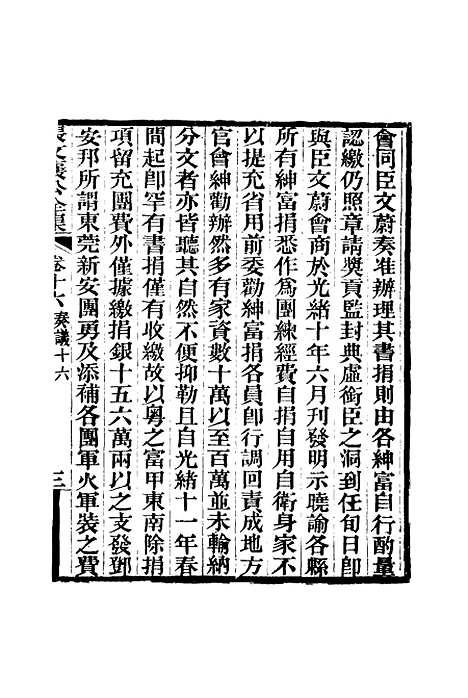 會同臣文蔚奏准辦理其書捐則由各紳富自行酌量
認繳仍照章請獎貢監封典虛銜臣之洞到任旬日卽
與臣文蔚會商於光緒十年六月刊發明示曉諭各縣
所有紳富捐悉作爲團練經費自捐自用自衛身家不
以提充省用前委勸紳富捐各員卽行調回責成地方
官會紳勸辦然多有家資數十萬以至百萬並未輸納
分文者亦皆聽其自然不便抑勒且自光緒十一年春
間起卽罕有書捐僅有收繳故以粵之富甲東南除捐
項留充團費外僅據繳捐銀十五六萬兩以之支發鄧
安邦所謂東莞新安團勇及添補各團軍火軍裝之費
張文襄公全集 卷十六 奏議十六 三